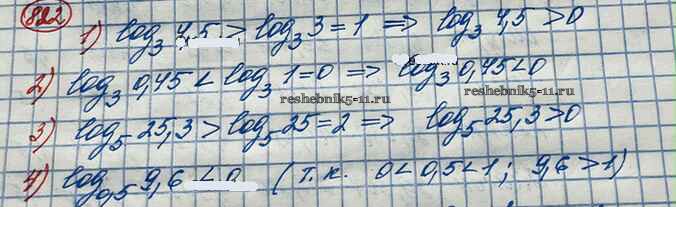 822
1) log₃ 4,5 > log₃ 3 = 1 ⇒ log₃ 4,5 > 0
2) log₃ 0,45 < log₃ 1 = 0 ⇒ log₃ 0,45 < 0
reshebnik5-11.ru reshebnik5-11.ru
3) log₅ 25,3 > log₅ 25 = 2 ⇒ log₅ 25,3 > 0
4) log₀,₅ 9,6 < 0 (т.к. 0 < 0,5 < 1; 9,6 > 1)